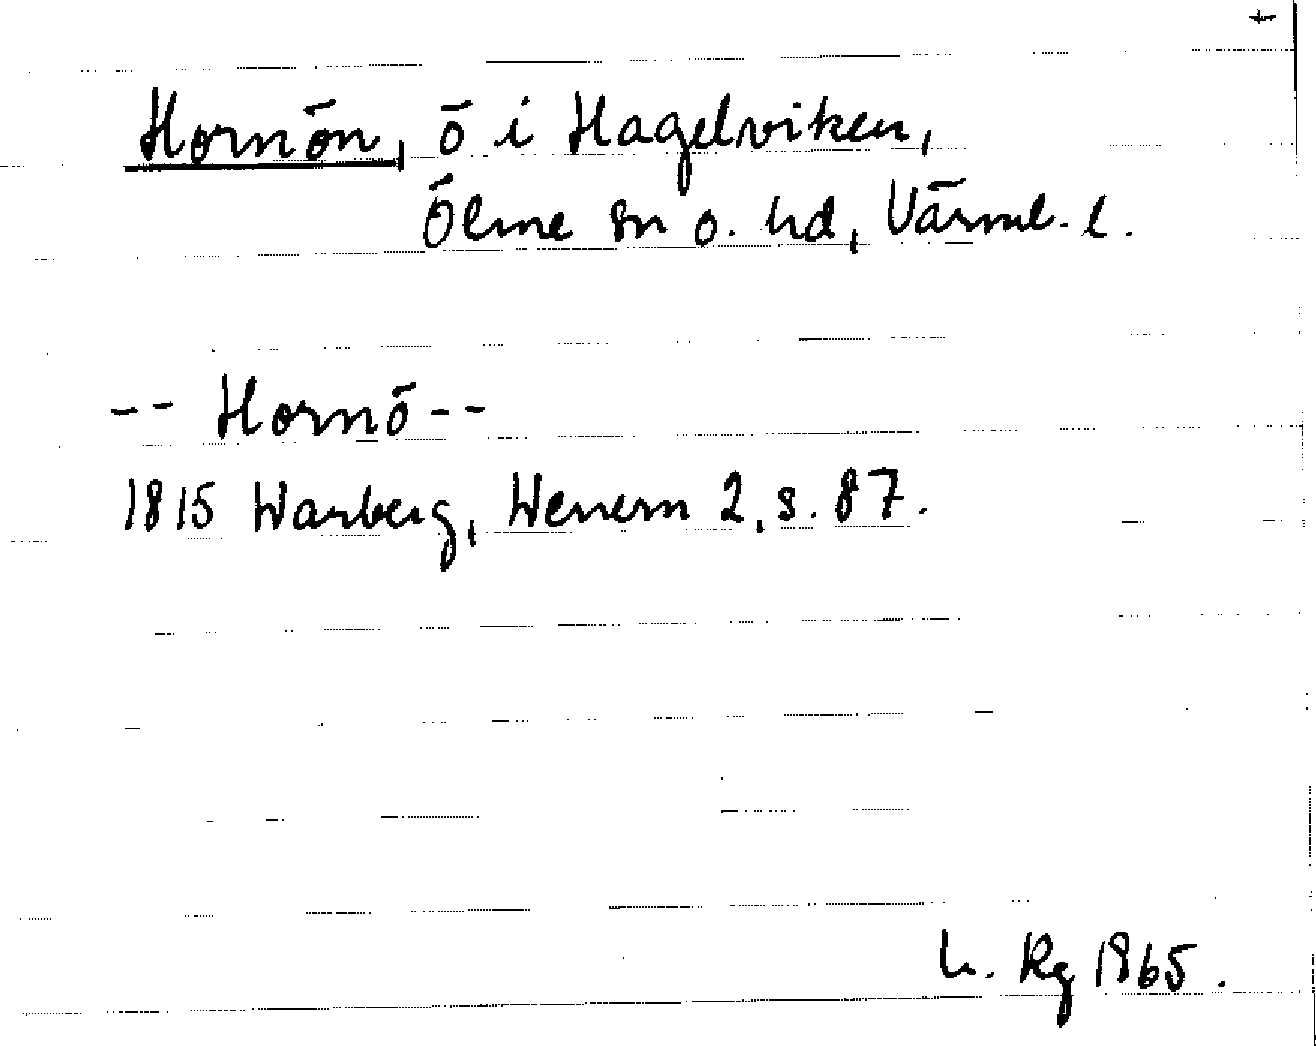 +
Hornön, ö i Hagelviken,
Ölme sn o. hd, Värml. l.
-- Hornö --
1815 Warberg, Wenern 2, s. 87.
h. Rg 1965.